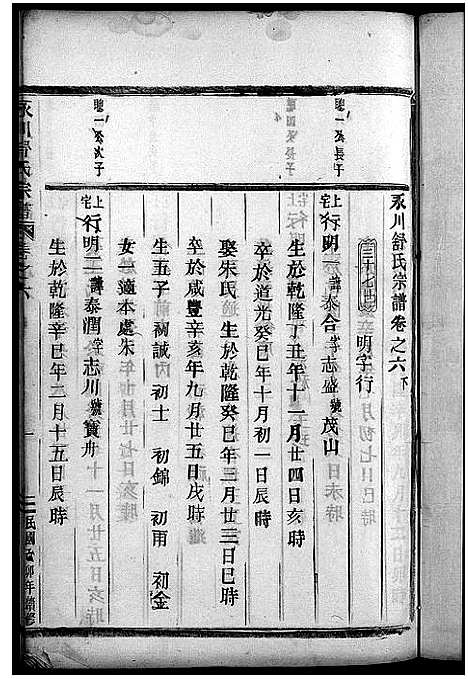 永川舒氏宗譜卷之六下
三十七世 明字行
聰一公長子
上宅行明一諱泰合字志盛號茂山
生於乾隆丁丑年十一月廿四日亥時
卒於道光癸巳年十月初一日辰時
娶朱氏 生於乾隆癸巳年三月廿三日巳時
卒於咸豐辛亥年九月廿五日戌時
生五子 初誠 初士 初錦 初雨 初金
女一適本處朱
聰一公次子
上宅行明二諱泰潤字志川號寶舟
生於乾隆辛巳年二月十五日辰時
永川舒氏宗譜
卷之六
民國
卯年續修